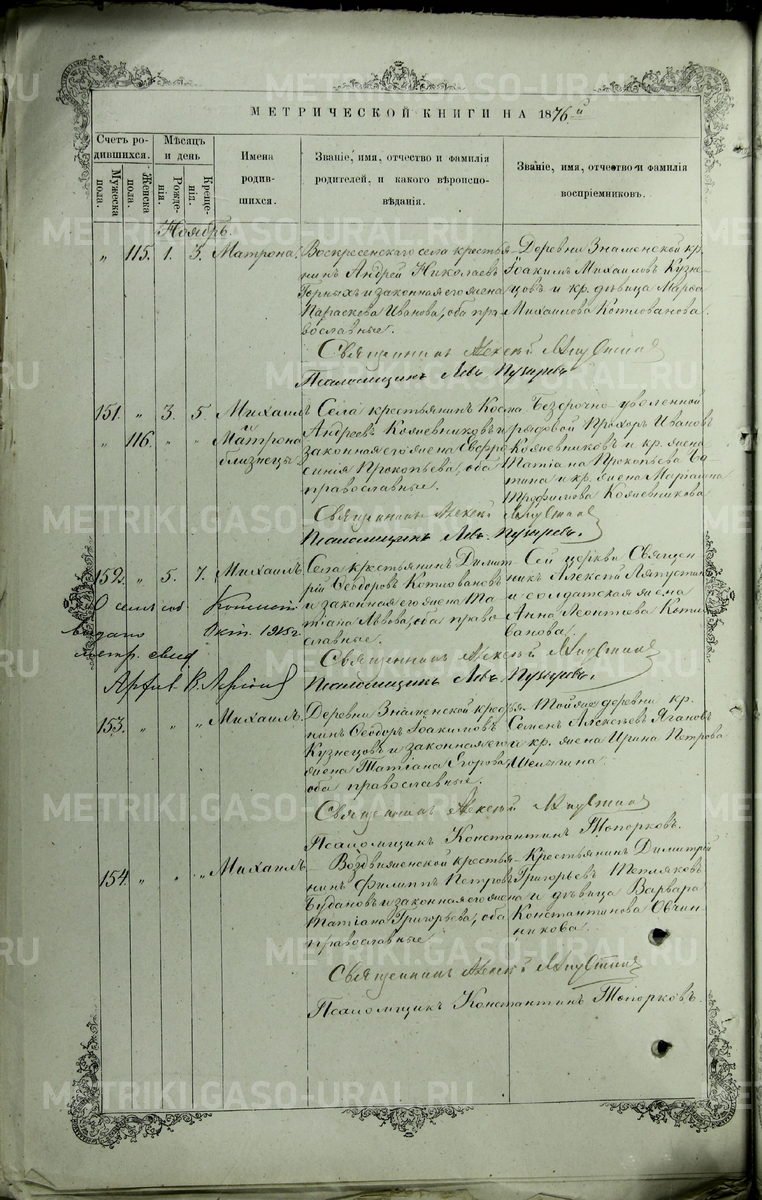 МЕТРИЧЕСКОЙ КНИГИ НА 1876й
Счетъ родившихся.
Мѣсяцъ и день
Имена родившихся.
Званіе, имя, отчество и фамилія родителей, и какого вѣроисповѣданія.
Званіе, имя, отчество и фамилія воспріемниковъ.
Мужеска пола.
Женска пола.
Рожденія.
Крещенія.
Ноябрь.
„ 115. 1. 3. Матрона.
Воскресенскаго села крестья-
нинъ Андрей Николаевъ
Горныхъ и законная его жена
Параскева Иванова, оба пра-
вославные.
Деревни Знаменской кр.
Іоакимъ Михаиловъ Кузне-
цовъ и кр. дѣвица Марѳа
Михаилова Котлованова.
Священникъ Алексій Ляпустинъ
Псаломщикъ Левъ Пузыревъ.
151. „ 3. 5. Михаилъ
„ 116. „ „ и Матрона
близнецы
Села крестьянинъ Косма
Андреевъ Кожевниковъ и
законная его жена Евфро-
синія Прокопьева, оба
православные.
Безсрочно-уволенной
рядовой Прохоръ Ивановъ
Кожевниковъ и кр. жена
Татіана Прокопьева
и кр. жена Маріамна
Трофимова Кожевникова
Священникъ Алексій Ляпустинъ
Псаломщикъ Левъ Пузыревъ.
152. „ 5. 7. Михаилъ.
Села крестьянинъ Димит-
рій Ѳеодоровъ Котловановъ
и законная его жена Та-
тіана Львова, оба право-
славные.
Сей церкви Священ-
никъ Алексій Ляпустинъ
и солдатская жена
Анна Леонтіева Котло-
ванова.
О семъ
выдано Окт. 1915 г.
метр. свид.
Священникъ Алексій Ляпустинъ
Псаломщикъ Левъ Пузыревъ.
153. „ „ „ Михаилъ.
Деревни Знаменской кресть-
нинъ Ѳеодоръ Іоакимовъ
Кузнецовъ и законная его
жена Татіана Егорова,
оба православные.
Тойже деревни кр.
Семенъ Алексѣевъ Ягановъ
и кр. жена Ирина Петрова
Шелыгина.
Священникъ Алексій Ляпустинъ
Псаломщикъ Константинъ Топорковъ.
154. „ „ „ Михаилъ.
Воздвиженской крестья-
нинъ Филиппъ Петровъ
Будановъ и законная его жена
Татіана Григорьева, оба
православные
Крестьянинъ Димитрій
Григорьевъ Тепляковъ
и дѣвица Варвара
Константинова Овчин-
никова.
Священникъ Алексій Ляпустинъ
Псаломщикъ Константинъ Топорковъ.
METRIKI.GASO-URAL.RU